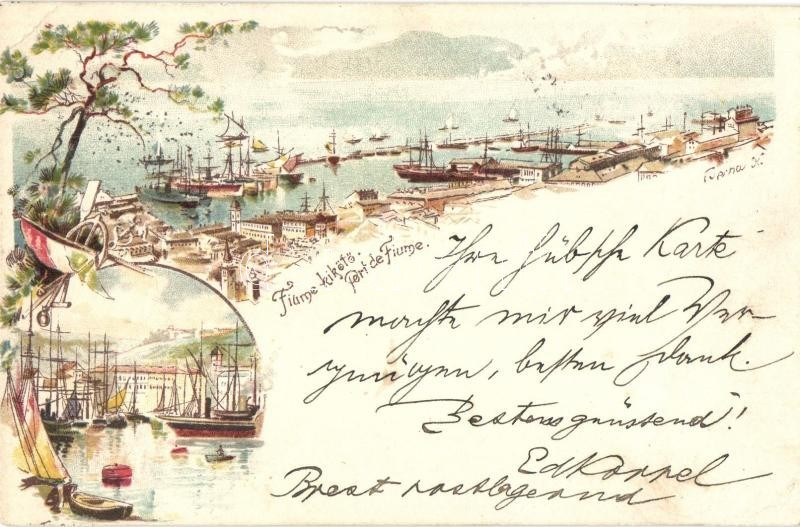 Fiume kikötő.
Port de Fiume.
Ihre hübsche Karte
machte mir viel Ver-
gnügen, besten Dank.
Bestens grüssend!
Ed
Brest postlagernd